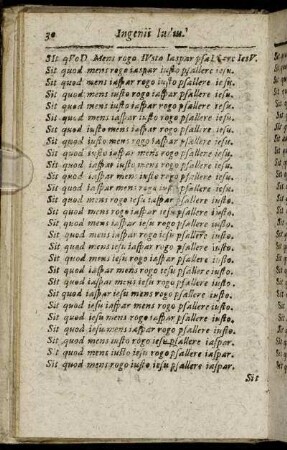 30 Ingenii
SIt qVoD Mens rogo IVsto Iaspar psallere IesV.
Sit quod mens rogo iaspar iusto psallere iesu.
Sit quod mens iusto rogo iaspar psallere iesu.
Sit quod mens iusto iaspar rogo psallere iesu.
Sit quod mens iaspar rogo iusto psallere iesu.
Sit quod iusto mens rogo iaspar psallere iesu.
Sit quod iusto mens iaspar rogo psallere iesu.
Sit quod iusto iaspar mens rogo psallere iesu.
Sit quod iaspar mens rogo iusto psallere iesu.
Sit quod iaspar mens iusto rogo psallere iesu.
Sit quod iaspar mens rogo iusto psallere iesu.
Sit quod mens rogo iesu iaspar psallere iusto.
Sit quod mens rogo iaspar iesu psallere iusto.
Sit quod mens iaspar rogo iesu psallere iusto.
Sit quod mens iaspar iesu rogo psallere iusto.
Sit quod mens iesu iaspar rogo psallere iusto.
Sit quod mens iesu rogo iaspar psallere iusto.
Sit quod iaspar mens rogo iesu psallere iusto.
Sit quod iaspar mens iesu rogo psallere iusto.
Sit quod iaspar iesu mens rogo psallere iusto.
Sit quod iesu iaspar mens rogo psallere iusto.
Sit quod iesu mens rogo iaspar psallere iusto.
Sit quod iesu mens iaspar rogo psallere iusto.
Sit quod mens iusto rogo iesu psallere iaspar.
Sit quod mens iusto iesu rogo psallere iaspar.
Sit quod mens rogo iusto iesu psallere iaspar.
Sit